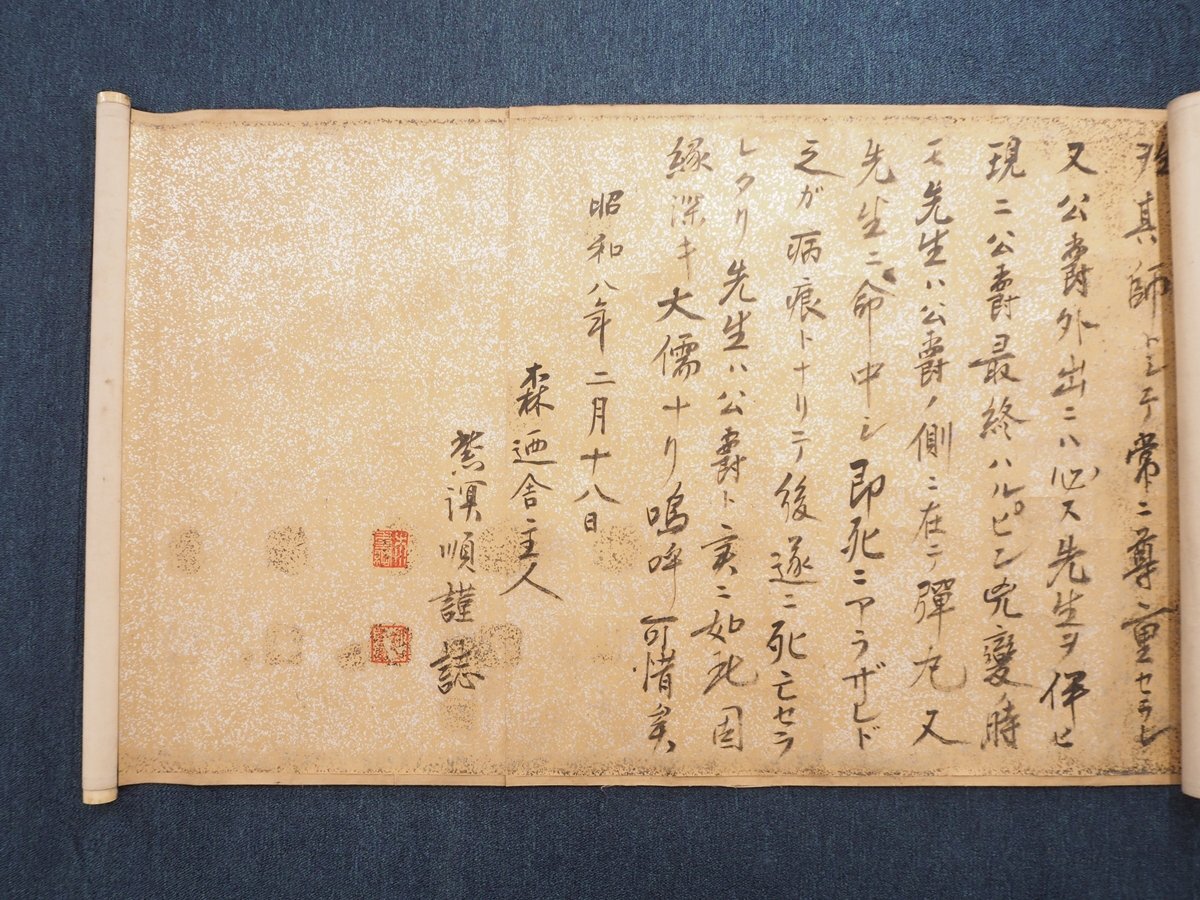 ヲ其師トシテ常ニ尊重セラレ
又公爵外出ニハ必ス先生ヲ伴ヒ
現ニ公爵最終ハルピン兇變ノ時
モ先生ハ公爵ノ側ニ在テ彈丸又
先生ニ命中シ即死ニアラザレド
之ガ病痕トナリテ後遂ニ死亡セラ
レタリ先生ハ公爵ト実ニ如此因
縁深キ大儒ナリ嗚呼可惜矣
昭和八年二月十八日
森迺舍主人
順謹誌